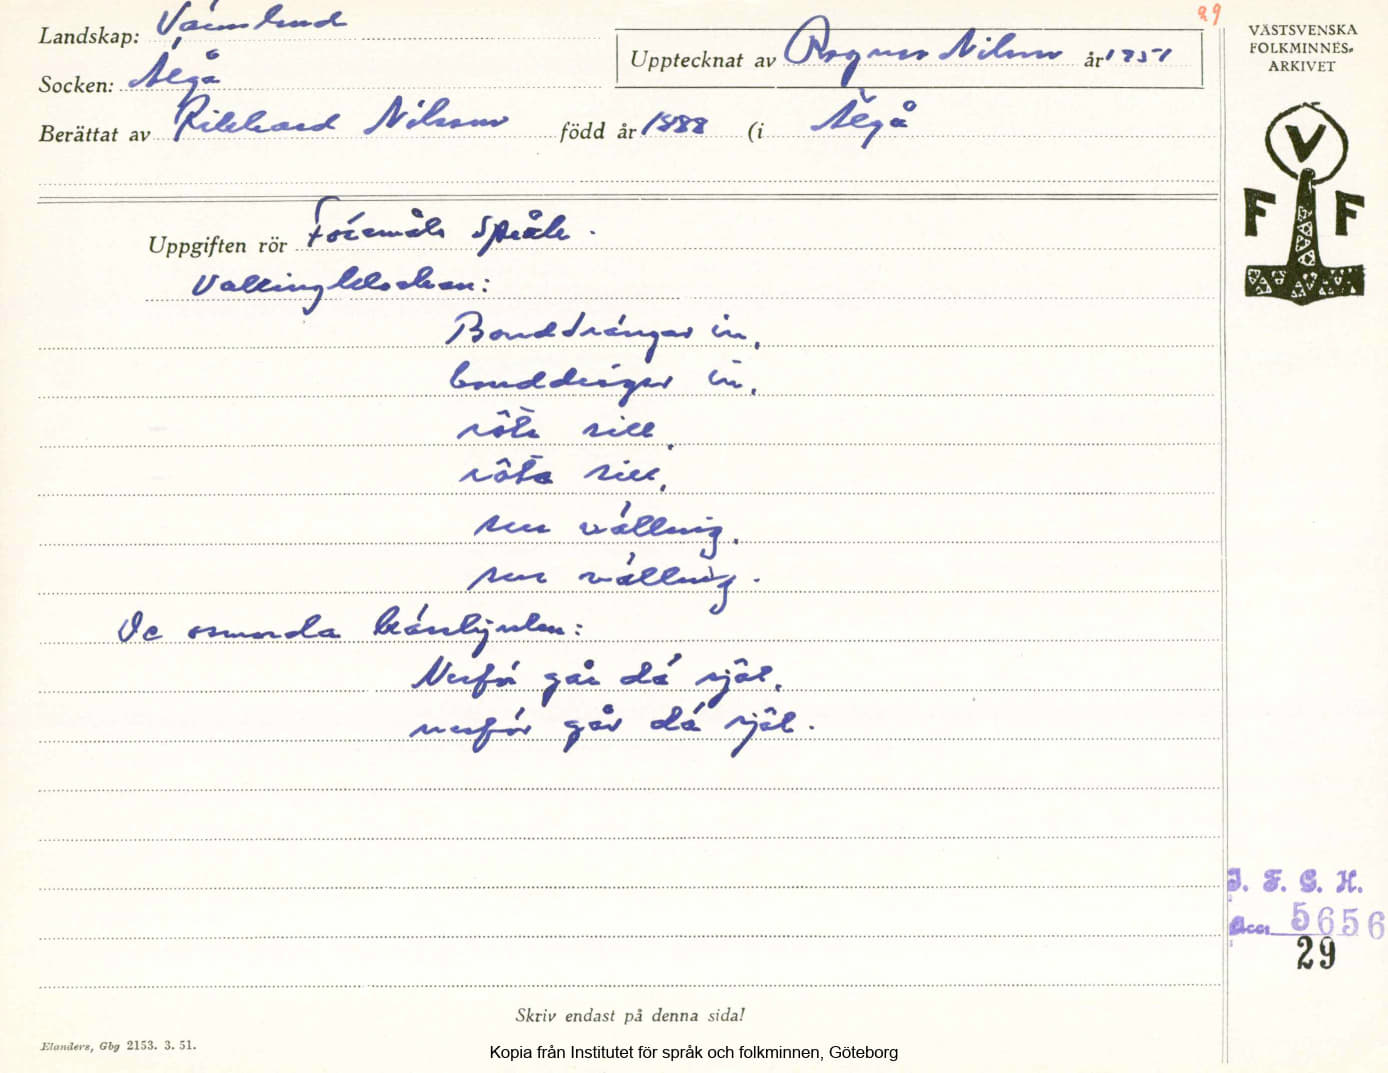 29
Landskap: Värmland
Upptecknat av Ragnar Nilsson år 1951
Socken: Älgå
Berättat av Rikhard Nilsson född år 1888 (i Älgå
VÄSTSVENSKA
FOLKMINNES-
ARKIVET
V
F F
Uppgiften rör Föremåls språk.
Vällingklockan:
Bonddrängar in,
bonddrängar in,
röta sill,
röta sill,
sur välling,
sur välling.
De osmorda kärrhjulen:
Nerför går dä själ,
nerför går dä själ.
I. F. G. H.
Acc. 5656
29
Skriv endast på denna sida!
Elanders, Gbg 2153. 3. 51.
Kopia från Institutet för språk och folkminnen, Göteborg